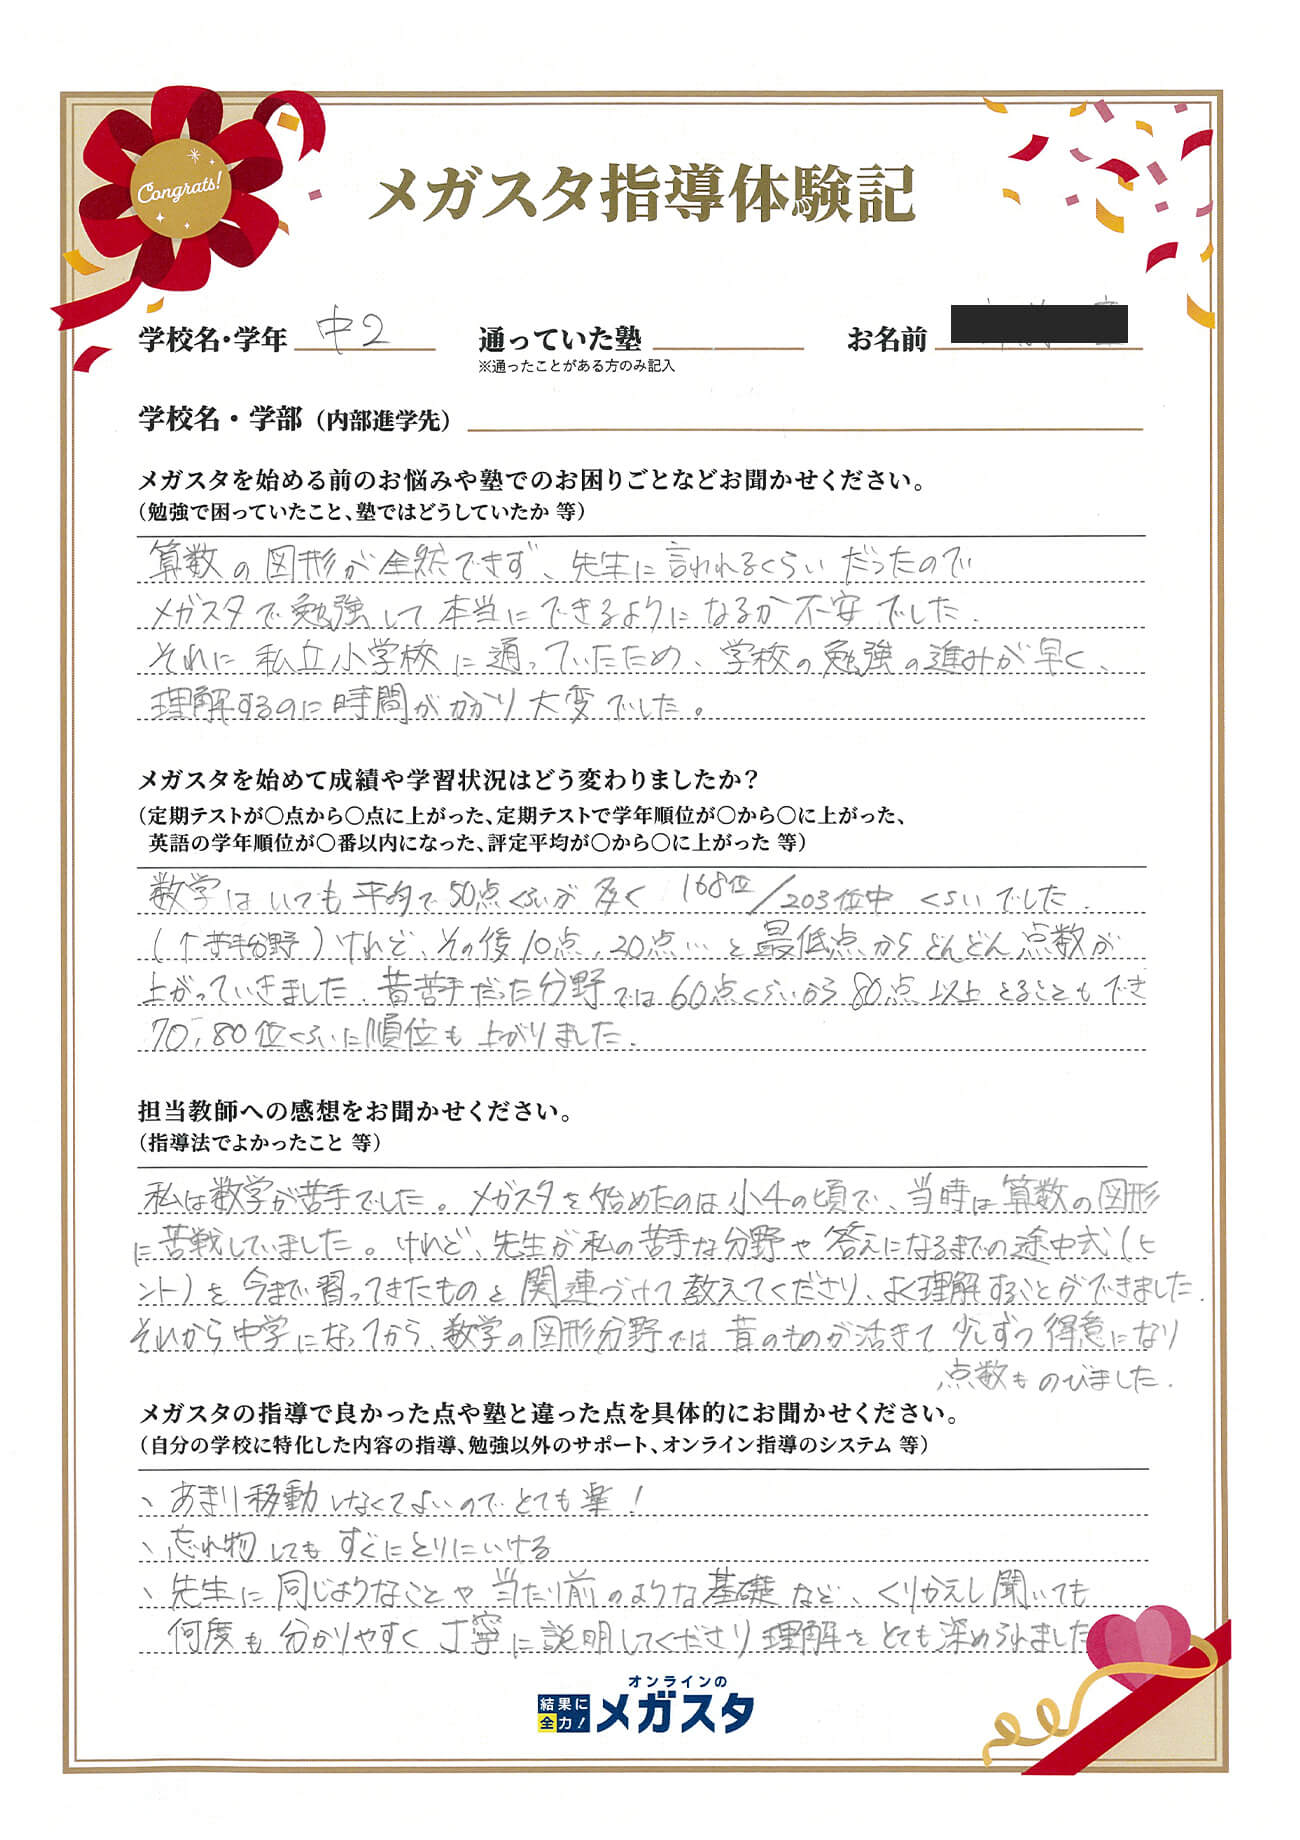 Congrats!
メガスタ指導体験記
学校名・学年 中2 通っていた塾 お名前
※通ったことがある方のみ記入
学校名・学部（内部進学先）
メガスタを始める前のお悩みや塾でのお困りごとなどお聞かせください。
（勉強で困っていたこと、塾ではどうしていたか 等）
算数の図形が全然できず、先生に言われるくらいだったので
メガスタで勉強して本当にできるようになるか不安でした.
それに私立小学校に通っていたため、学校の勉強の進みが早く、
理解するのに時間がかかり大変でした。
メガスタを始めて成績や学習状況はどう変わりましたか？
（定期テストが〇点から〇点に上がった、定期テストで学年順位が〇から〇に上がった、
英語の学年順位が〇番以内になった、評定平均が〇から〇に上がった 等）
数学はいても平均で50点くらいが多く 168位/203位中 くらいでした.
(↑苦手分野)けれど、その後10点、20点…と最低点からどんどん点数が
上がっていきました. 昔苦手だった分野では60点くらいから80点以上とることもでき
70,80位くらいに順位も上がりました.
担当教師への感想をお聞かせください。
（指導法でよかったこと 等）
私は数学が苦手でした。メガスタを始めたのは小4の頃で、当時は算数の図形
に苦戦していました。けれど、先生が私の苦手な分野や答えになるまでの途中式(ヒ
ント)を今まで習ってきたものと関連づけて教えてくださり、よく理解することができました.
それから中学になってから、数学の図形分野では昔のものが活きて少しずつ得意になり
点数ものびました.
メガスタの指導で良かった点や塾と違った点を具体的にお聞かせください。
（自分の学校に特化した内容の指導、勉強以外のサポート、オンライン指導のシステム 等）
、あまり移動しなくてよいのでとても楽！
、忘れ物してもすぐにとりにいける
、先生に同じようなことや当たり前のような基礎など、くりかえし聞いても
何度も分かりやすく丁寧に説明してくださり理解をとても深められました
オンラインの
結果に全力！メガスタ